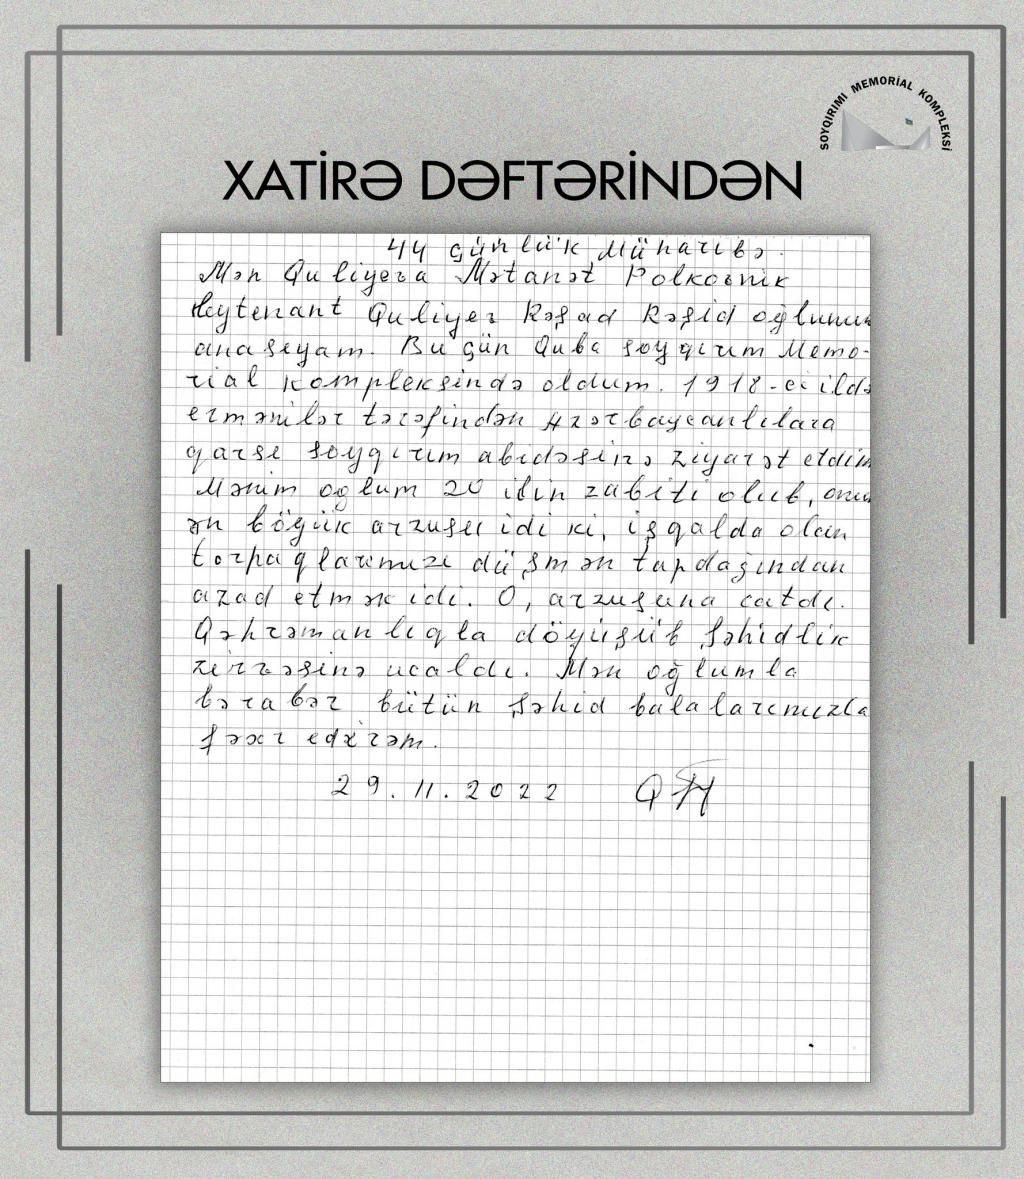 SOYQIRIMI MEMORİAL KOMPLEKSİ
XATİRƏ DƏFTƏRİNDƏN
44 günlük Müharibə.
Mən Quliyeva Mətanət Polkovnik
leytenant Quliyev Rəşad Rəşid oğlunun
anasıyam. Bu gün Quba soyqırım Memo-
rial kompleksində oldum. 1918-ci ildə
ermənilər tərəfindən Azərbaycanlılara
qarşı soyqırım abidəsinə ziyarət etdim
Mənim oğlum 20 ilin zabiti olub, onun
ən böyük arzusu idi ki, işğalda olan
torpaqlarımızı düşmən tapdağından
azad etmək idi. O, arzusuna çatdı.
Qəhrəmanlıqla döyüşüb şəhidlik
zirvəsinə ucaldı. Mən oğlumla
bərabər bütün şəhid balalarımızla
fəxr edirəm.
29.11.2022